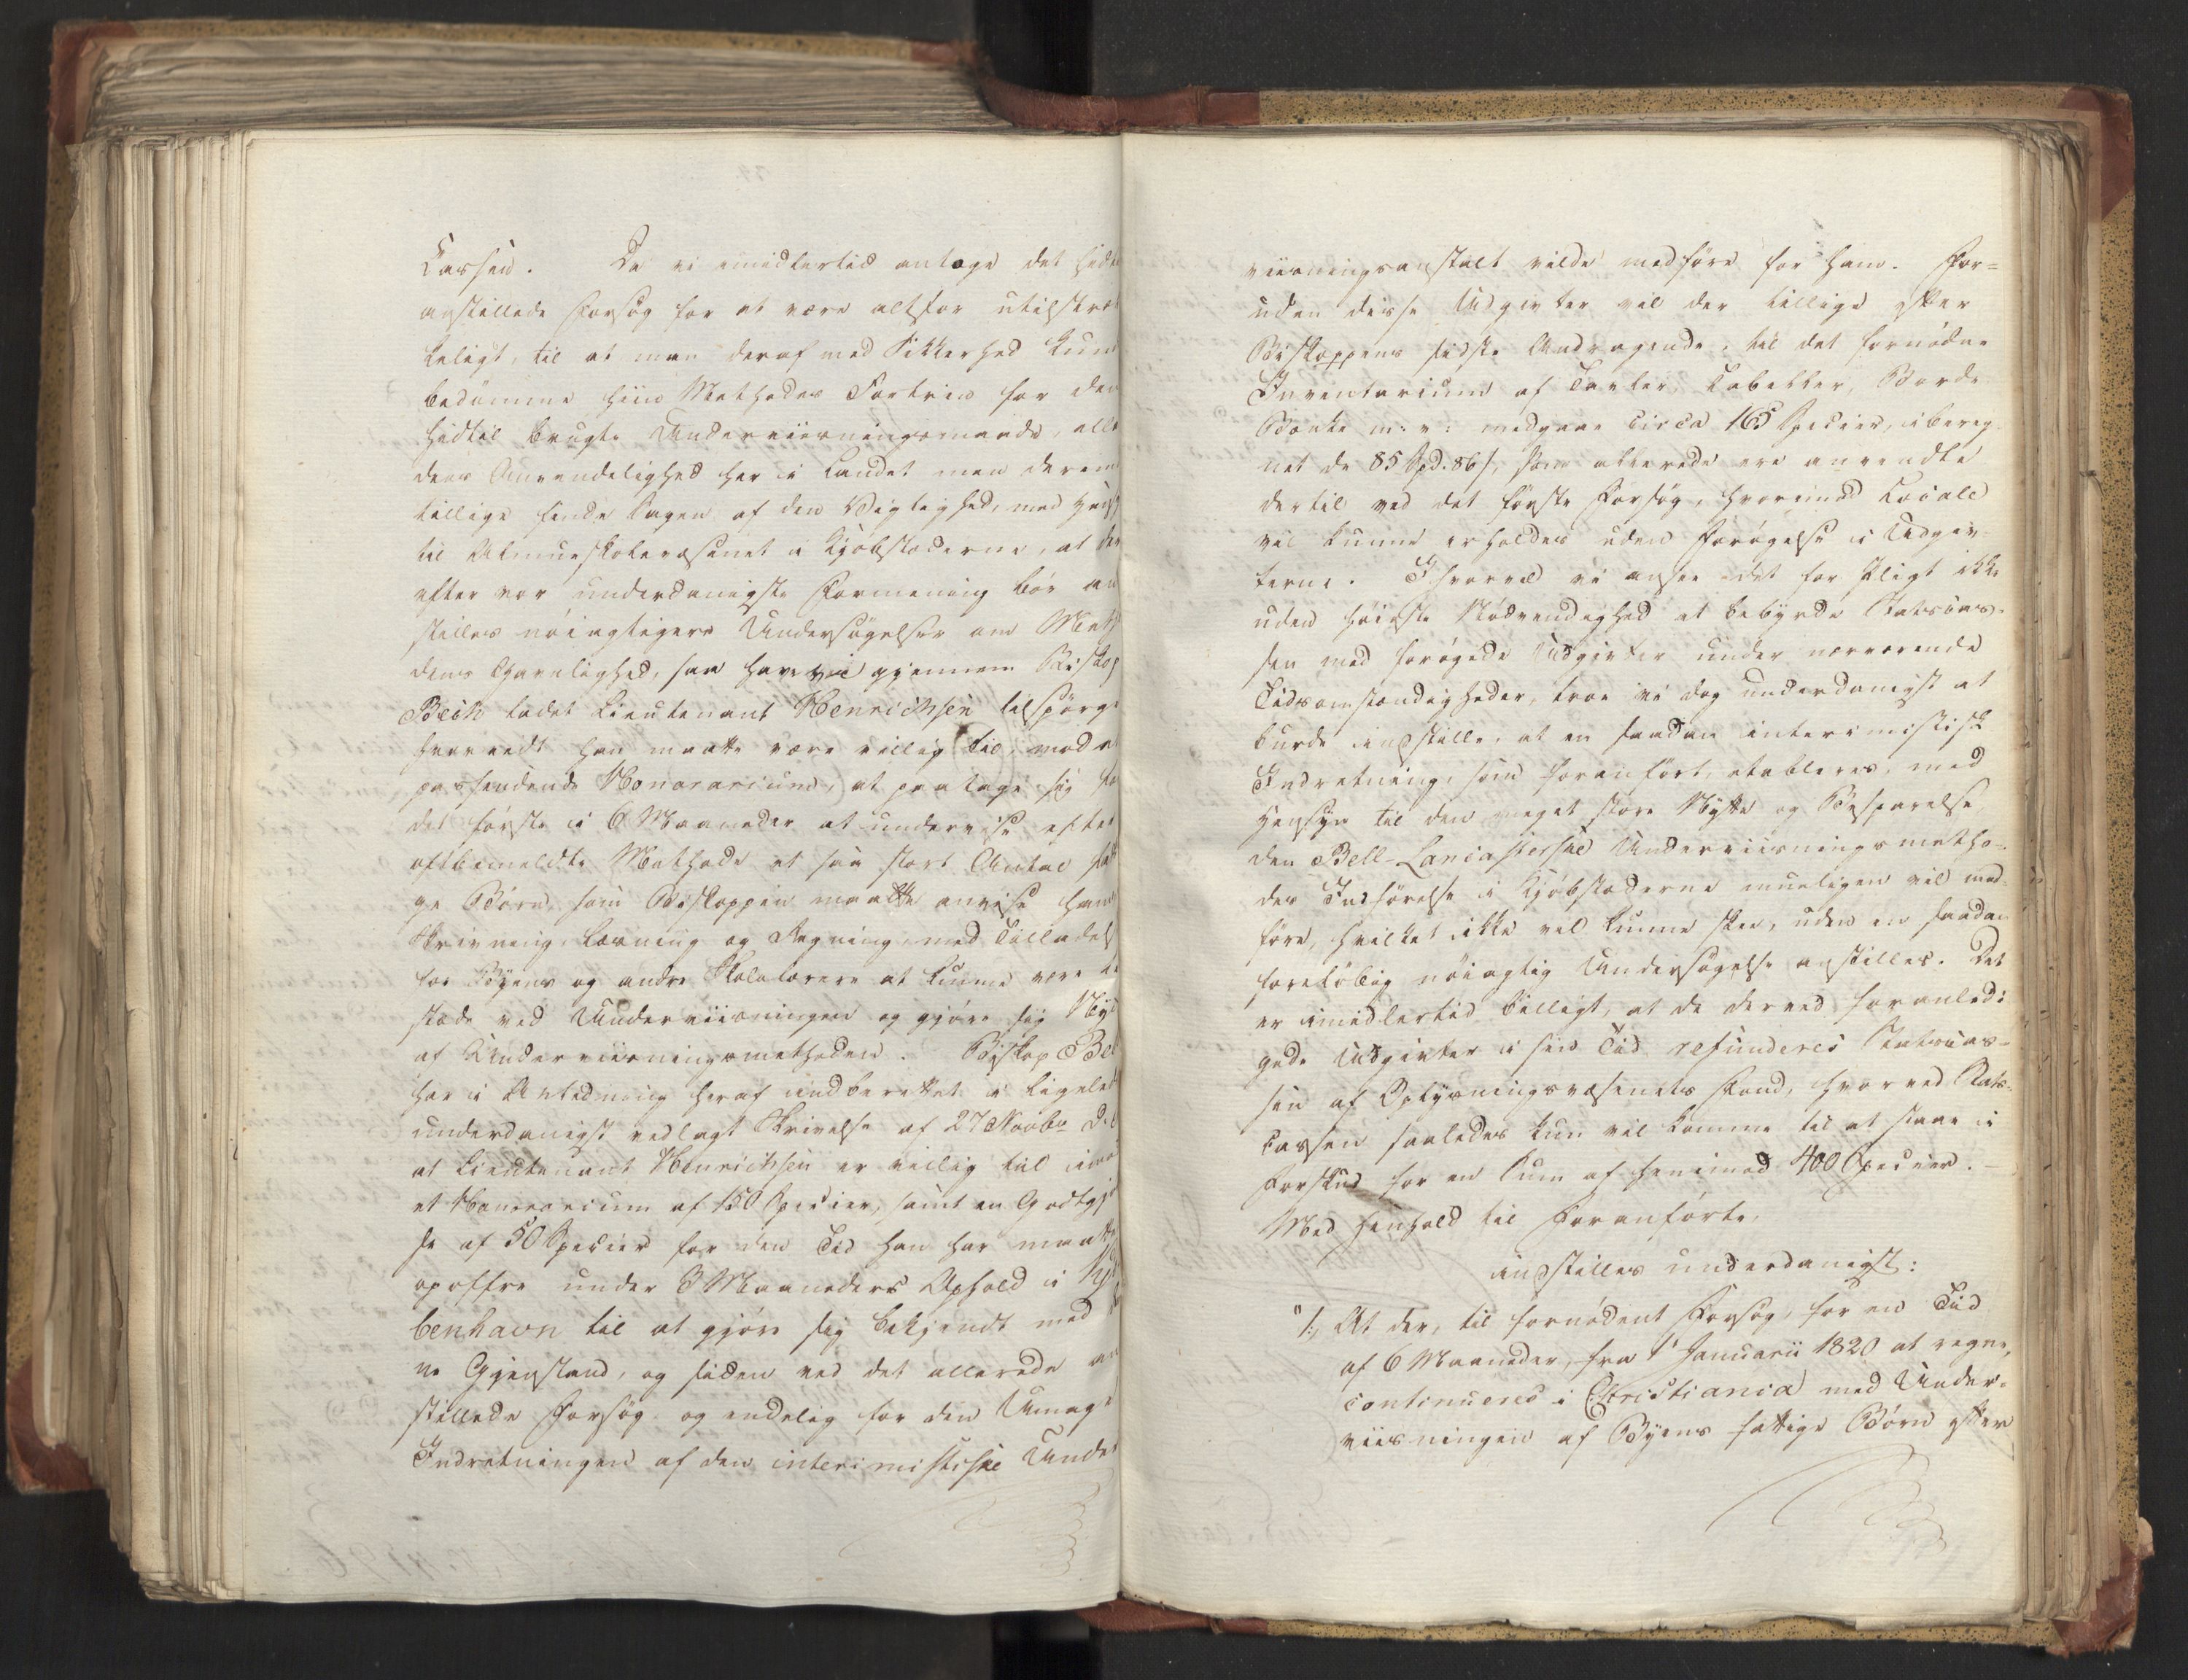 Cassen. Da vi imidlertid antage det hidt
anstillede Forsøg for at være altfor utilstræk
keligt, til at man deraf med Sikkerhed kund
bedømme hiin Methodes Fortrin for den
hidtil brugte Underviisningsmaade, elle
dens Anvendelighed her i Landet men derim
tillige finde Sagen af den Vigtighed, med Hensy
til Almueskolevæsenet i Kjøbstæderne, at der
efter vor underdanigste Formening bør an
stilles nøiagtigere Undersøgelser om Metho
dens Gavnlighed, saa have vi gjennem Biskop
Bech ladet Lieutenant Henrichsen tilspørge
hvorvidt han maatte være villig til, mod et
passendende Honorarium, at paatage sig for
det første i 6 Maaneder at undervise efter
oftbemeldte Methode et saa stort Antal fatti
ge Børn, som Biskoppen maatte anvise ham
Skrivning, Læsning og Regning, med Tilladels
for Byens og andre Skolelærere at kunne være til
stæde ved Underviisningen og gjøre sig Nyt
af Underviisningsmethoden. Biskop Bec
har i Anledning heraf indberettet i ligeled
underdanigst vedlagt Skrivelse af 27 Novbr d. A
at Lieutenant Henrichsen er villig til imod
et Honorarium af 150 Specier, samt en Godtgjø
se af 50 Specier for den Tid han har maatte
opoffre under 3 Maaneders Ophold i Kjø
benhavn til at gjøre sig bekjendt med
ne Gjenstand, og siden ved det allerede an
stillede Forsøg og endelig for den Umage
Indretningen af den interimistiske Under
viisningsanstalt vilde medføre for ham. For=
uden disse Udgivter vil der tillige efter
Biskoppens sidste Andragende, til det fornødne
Inventarium af Tavler, Tabeller, Borde
Bænke m: v: medgaae circa 165 Specier, ibereg
net de 85 Spd. 86 s, som allerede ere anvendte
dertil ved det første Forsøg, hvorimod Locale
vil kunne erholdes uden Forøgelse i Udgiv
terne. Ihvorvel vi ansee det for Pligt ikke
uden høieste Nødvendighed at bebyrde Statscas-
sen med forøgede Udgivter under nærværende
Tidsomstændigheder, troe vi dog underdanigst at
burde indstille, at en saadan interimistisk
Indretning, som foranført, etableres, med
Hensyn til den meget store Nytte og Besparelse
den Bell-Lancasterske Underviisningsmetho-
des Indførelse i Kjøbstæderne mueligen vil med-
føre, hvilket ikke vel kunne skee, uden en saadan
foreløbig nøiagtig Undersøgelse anstilles. Det
er imidlertid billigt, at de derved foranledi
gede Udgivter i sin Tid refunderes Statscas=
sen af Oplysningsvæsenets Fond, hvorved Stats-
cassen saaledes kun vil komme til at staae i
Forskud for en Sum af henimod 400 Specier. —
Med Henhold til Foranførte,
indstilles underdanigst:
"1., At der, til fornødent Forsøg, for en Tid
af 6 Maaneder, fra 1' Januarii 1820 at regne,
continueres i Christiania med Under-
viisningen af Byens fattige Børn efter